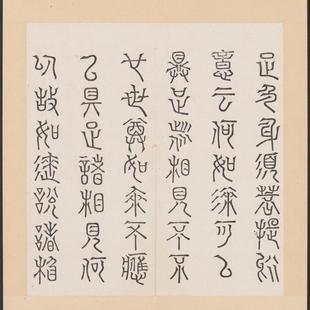 足色身須菩提於
意云何如來可以
具足諸相見不不
也世尊如來不應
以具足諸相見何
以故如來說諸相